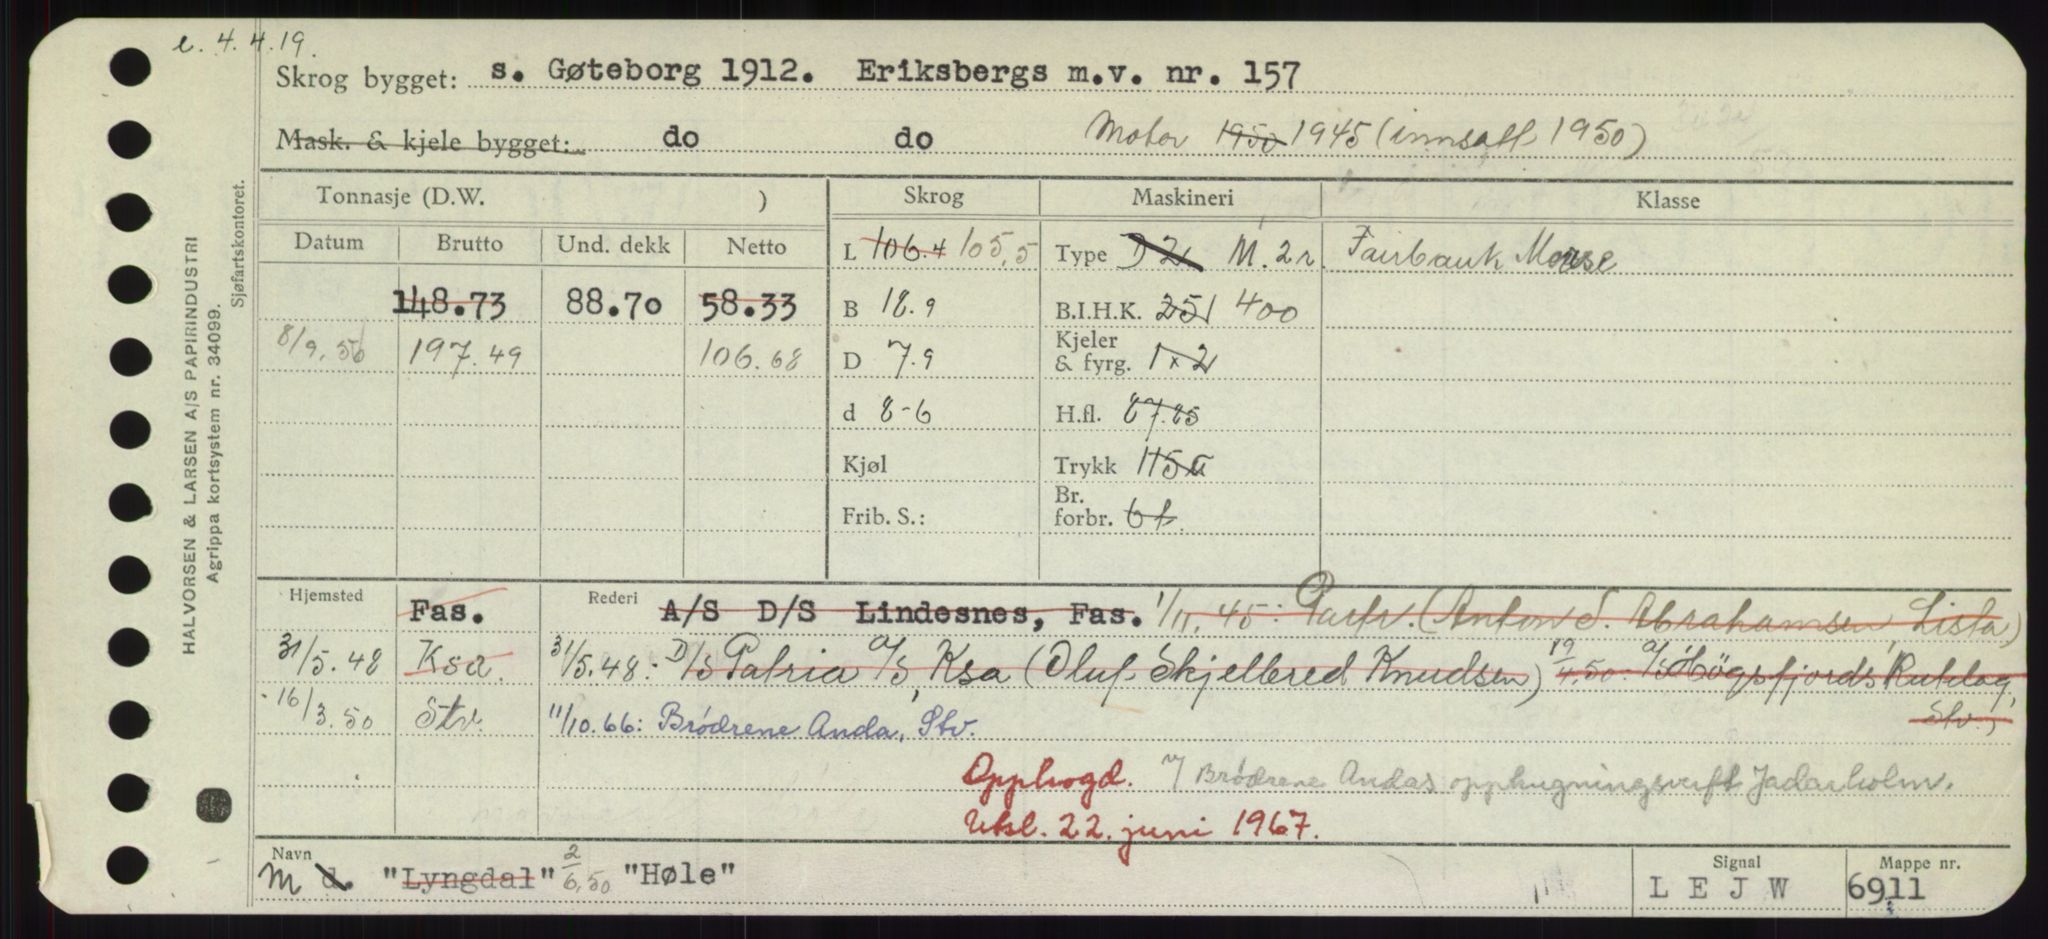 e. 4.4.19.
Skrog bygget: s. Gøteborg 1912. Eriksbergs m.v. nr. 157
Mask. & kjele bygget: do do Motor 1950 1945 (innsatt 1950)
Tonnasje (D.W. ) Skrog Maskineri Klasse
Datum Brutto Und. dekk Netto L 106.4 105,5 Type D 2r M. 2r. Fairbank Morse
148.73 88.70 58.33 B 18.9 B.I.H.K. 251 400
8/9.56 197.49 106.68 D 7.9 Kjeler & fyrg. 1x2
d 8-6 H.fl. 87.85
Kjøl Trykk 115
Frib. S.: Br. forbr. 6t.
Hjemsted Fas. Rederi A/S D/S Lindesnes, Fas. 1/11.45: Partr. (Anton S. Abrahamsen, Lista)
31/5.48 Ksa. 31/5.48: D/S Patria A/S, Ksa (Oluf Skjelbred Knudsen) 19/4.50: A/S Högsfjords Rutelag,
Stv.)
16/3.50 Stv. 11/10.66: Brödrene Anda, Stv.
Opphogd. v/ Brödrene Andas opphugningsverft Jadarholm.
Utsl. 22. juni 1967.
Navn M d. "Lyngdal" 2/6.50 "Høle" Signal LEJW Mappe nr. 6911
HALVORSEN & LARSEN A/S PAPIRINDUSTRI
Agrippa kortsystem nr. 34099.
Sjøfartskontoret.